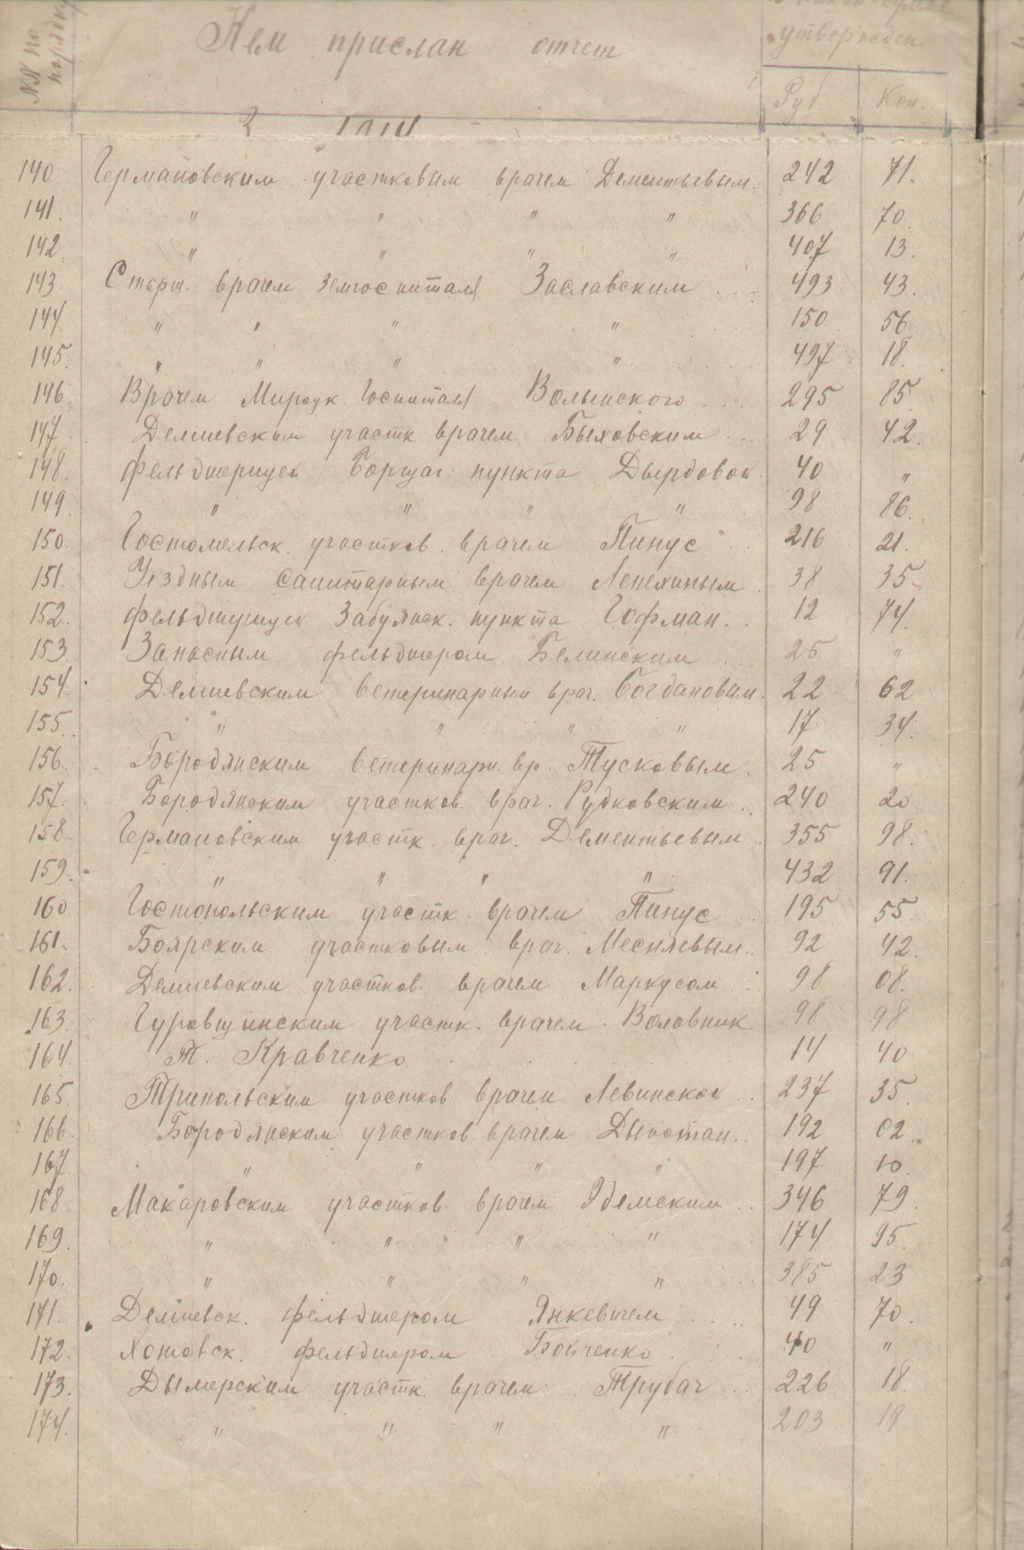 №№ по порядку Кем прислан отчет утвержден
Руб Коп.
140. Германовским участковым врачем Дементьевым. 242 71.
141. " " " " 366 70
142. " " " " 407 13.
143. Старш. врачем земгоспиталя Заславским 493 43.
144. " " " " 150 56
145. " " " " 497 18.
146. Врачем Госпиталя Волынского 295 85
147. Демиевским участк. врачем Быховским 29 42.
148. Фельдшерицей Борщаг. пункта Дырдовой 40 "
149. " " " " 98 86.
150. Гостомельск. участков. врачем Пинус 216 21.
151. Уездным санитарным врачем Лепехиным 38 35
152. Фельдшерицей Забуянск. пункта Гофман. 12 74.
153. Запасным фельдшером Белинским 25 "
154. Демиевским ветеринарным врач. Богдановым. 22 62
155. " " " " 17 34.
156. Бородянским ветеринарн. вр. Тусковым. 25 "
157. Бородянским участков. врач. Рудковским. 240 20
158. Германовским участк. врач. Дементьевым 355 98.
159. " " " " 432 91.
160. Гостопольским участк. врачем Пинус 195 55.
161. Боярским участковым врач. 92 42.
162. Демиевским участков. врачем Маркусом 98 08.
163. Гуровщинским участк. врачем. Воловник 98 98
164. Т. Кравченко 14 40
165. Трипольским участков. врачем Левинской 237 35.
166. Бородянским участков. врачем 192 02.
167. " " " " 197 10
168. Макаровским участков. врачем 346 79.
169. " " " " 174 95.
170. " " " " 385 23
171. Демиевск. фельдшером Янкевичем 49 70.
172. Хотовск. фельдшером Бойченко 40 "
173. Дымерским участк. врачем Трубач 226 18.
174. " " " " 203 19